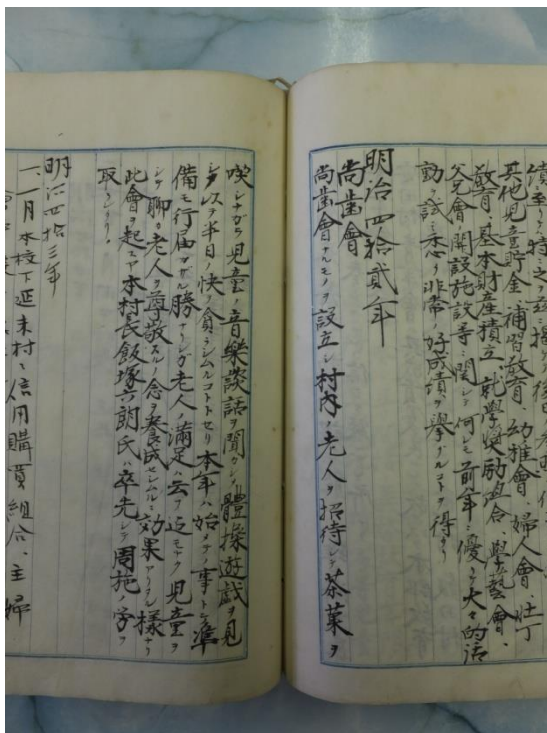 績ニ至リテハ特ニ之ヲ茲ニ掲ゲ後日ノ
其他児童貯金、補習教育、幼稚會、婦人會、壮丁
教育、基本財産積立、就學奨励組合、學藝會、
父兄會、開設施設等ニ関シテ何レモ前年ニ優リ大々的活
動ヲ試ミ悉ク非常ノ好成績ヲ挙グルコトヲ得タリ
明治四拾貳年
尚歯會
尚歯會ナルモノヲ設立シ村内ノ老人ヲ招待シテ茶菓ヲ
喫シナガラ児童ノ音樂談話ヲ聞カシメ體操遊戯ヲ見
シメ以テ半日ノ快ヲ貪ラシムルコトトセリ本年ハ始メテノ事トテ準
備モ行届カザル勝チナレシガ老人ノ満足ハ云フ迄モナク児童ヲ
シテ聊カ老人ヲ尊敬スルノ念ヲ養成セシムルニ効果アリタル様ナリ
此會ヲ起スヤ本村長飯塚六朗氏ハ卒先シテ周旋ノ労ヲ
取ラレタリ
明治四拾三年
一、一月本校下延末村ニ信用購買組合、主婦